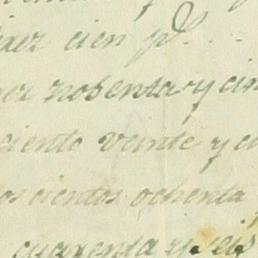 cien p.
nobenta y cin
ciento veinte y ci
oscientos ochenta
cuarenta y seis